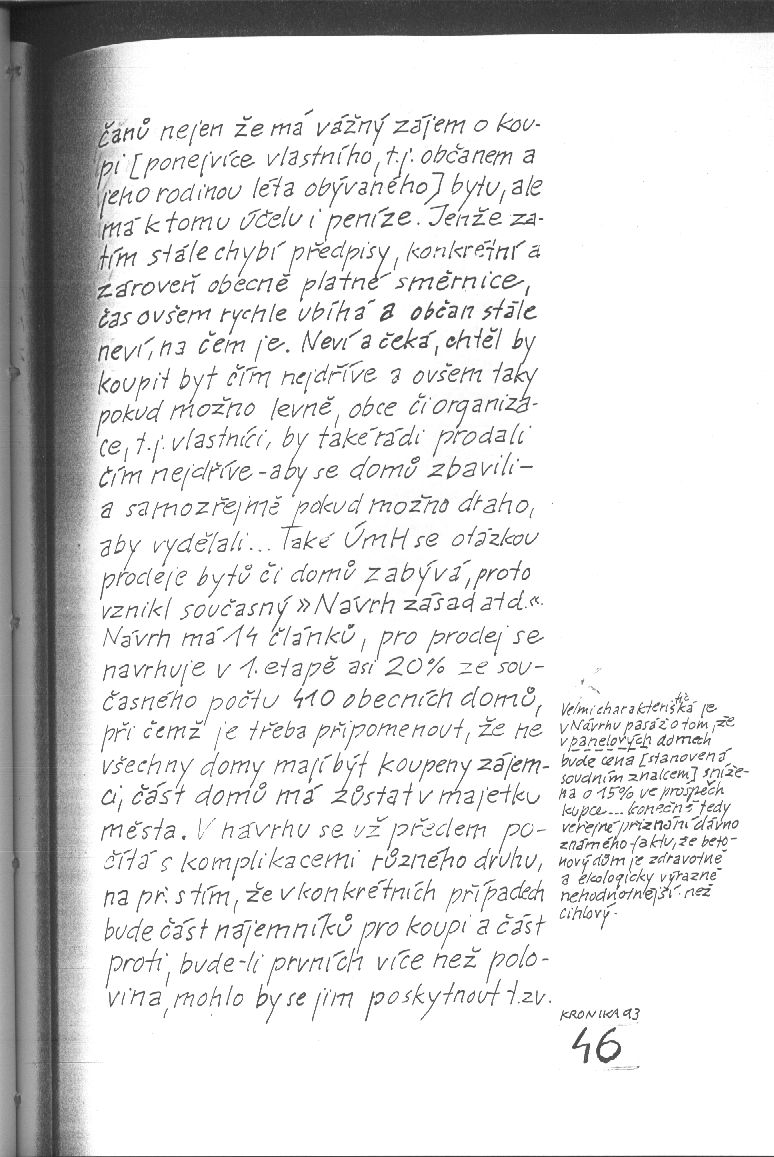 čanů nejen že má vážný zájem o kou-
pi [ponejvíce vlastního, t.j. občanem a
jeho rodinou léta obývaného] bytu, ale
má k tomu účelu i peníze. Jenže za-
tím stále chybí předpisy, konkrétní a
zároveň obecně platné směrnice,
čas ovšem rychle ubíhá a občan stále
neví, na čem je. Neví a čeká, chtěl by
koupit byt čím nejdříve a ovšem taky
pokud možno levně, obce či organiza-
ce, t.j. vlastníci, by také rádi prodali
čím nejdříve - aby se domů zbavili -
a samozřejmě pokud možno draho,
aby vydělali... Také ÚmH se otázkou
prodeje bytů či domů zabývá, proto
vznikl současný »Návrh zásad atd.«.
Návrh má 14 článků, pro prodej se
navrhuje v 1. etapě asi 20% ze sou-
časného počtu 410 obecních domů,
při čemž je třeba připomenout, že ne
všechny domy mají být koupeny zájem-
ci, část domů má zůstat v majetku
města. V návrhu se už předem po-
čítá s komplikacemi různého druhu,
na př. s tím, že v konkrétních případech
bude část nájemníků pro koupi a část
proti, bude-li prvních více než polo-
vina, mohlo by se jim poskytnout t.zv.
Velmi charakteristická je
v Návrhu pasáž o tom, že
v panelových domech
bude cena [stanovená
soudním znalcem] sníže-
na o 15% ve prospěch
kupce... konečně tedy
veřejné přiznání dávno
známého faktu, že beto-
nový dům je zdravotně
a ekologicky výrazně
nehodnotnější než
cihlový.
KRONIKA 93
46